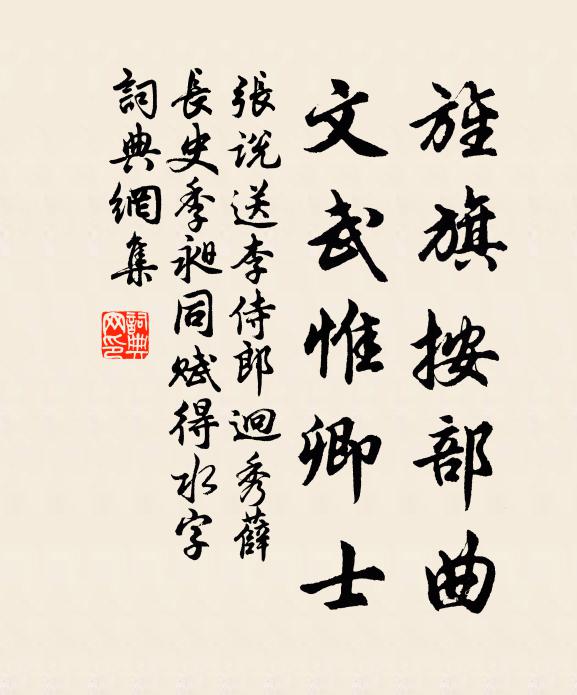 旌旗按部曲
文武惟卿士
張説送李侍郎迥秀薛
長史季昶同賦得水字
詞典網集
詞典
网印